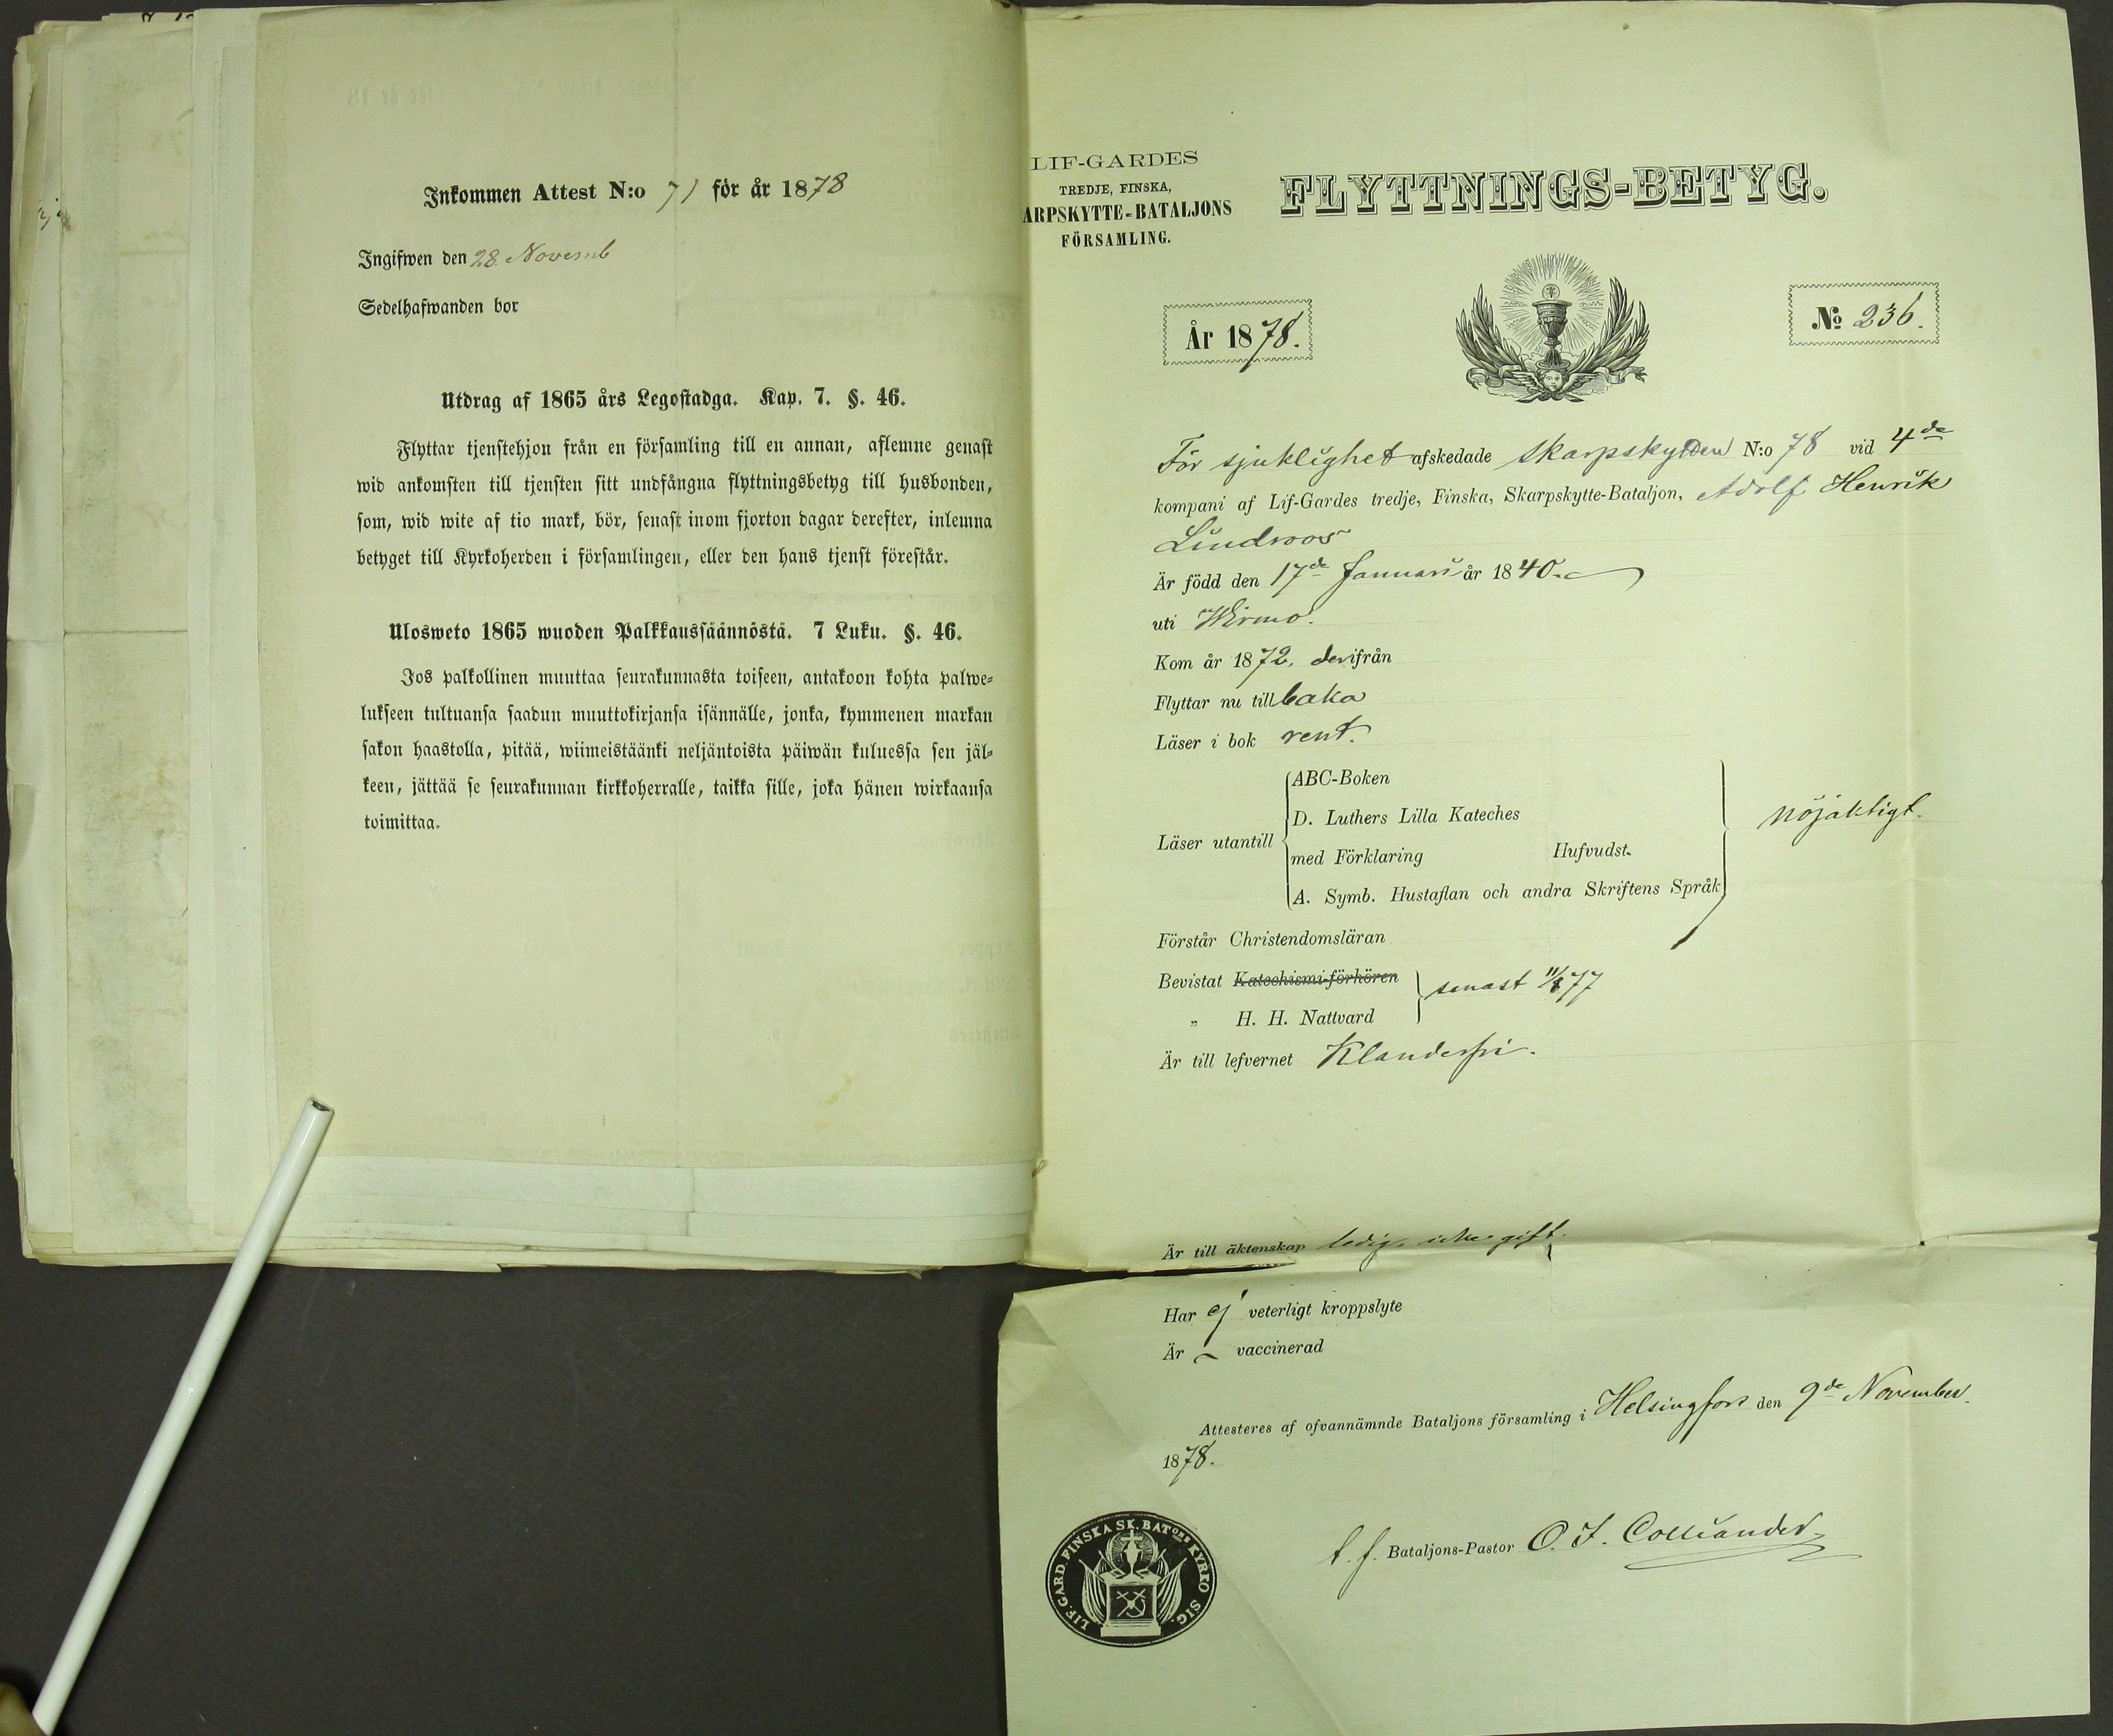 Inkommen Attest N:o 71 för år 1878
Ingifwen den 28 Novemb
Sedelhafwanden bor
Utdrag af 1865 års Legostadga. Kap. 7. §. 46.
Flyttar tjenstehjon från en församling till en annan, aflemne genast
wid ankomsten till tjensten sitt undfångna flyttningsbetyg till husbonden,
som, wid wite af tio mark, bör, senast inom fjorton dagar derefter, inlemna
betyget till Kyrkoherden i församlingen, eller den hans tjenst förestår.
Ulosweto 1865 wuoden Palkkaussäännöstä. 7 Luku. §. 46.
Jos palkollinen muuttaa seurakunnasta toiseen, antakoon kohta palwe-
lukseen tultuansa saadun muuttokirjansa isännälle, jonka, kymmenen markan
sakon haastolla, pitää, wiimeistäänki neljäntoista päiwän kuluessa sen jäl-
keen, jättää se seurakunnan kirkkoherralle, taikka sille, joka hänen wirkaansa
toimittaa.
LIF-GARDES
TREDJE, FINSKA,
ARPSKYTTE-BATALJONS
FÖRSAMLING.
FLYTTNINGS-BETYG.
År 1878.
No 236.
För sjuklighet afskedade skarpskytten N:o 78 vid 4de
kompani af Lif-Gardes tredje, Finska, Skarpskytte-Bataljon, Adolf Henrik
Lindroos
Är född den 17de Januari år 1840.
uti Wirmo.
Kom år 1872. derifrån
Flyttar nu till baka
Läser i bok rent.
Läser utantill
ABC-Boken
D. Luthers Lilla Kateches
med Förklaring Hufvudst.
A. Symb. Hustaflan och andra Skriftens Språk
nöjaktigt.
Förstår Christendomsläran
Bevistat Katechismi-förhören
„ H. H. Nattvard
senast 11/3 77
Är till lefvernet Klanderfri.
Är till äktenskap ledig, icke gift.
Har ej veterligt kroppslyte
Är ~ vaccinerad
Attesteres af ofvannämnde Bataljons församling i Helsingfors den 9de November
1878.
t. f. Bataljons-Pastor O. I. Colliander
LIF. GARD. FINSKA SK. BATONS KYRKO SIG.